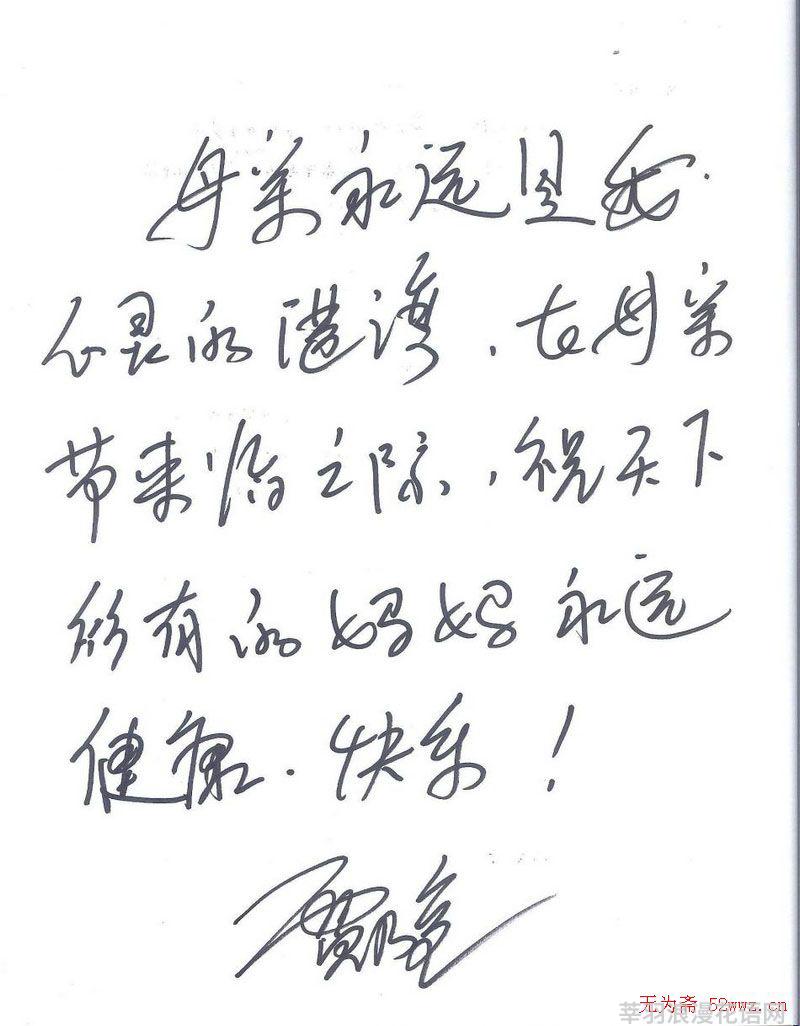 母亲永远是我
心灵的港湾，在母亲
节来临之际，祝天下
所有的妈妈永远
健康、快乐！
贾乃亮
无为斋 52wwz.cn
莘羽浪漫花语网